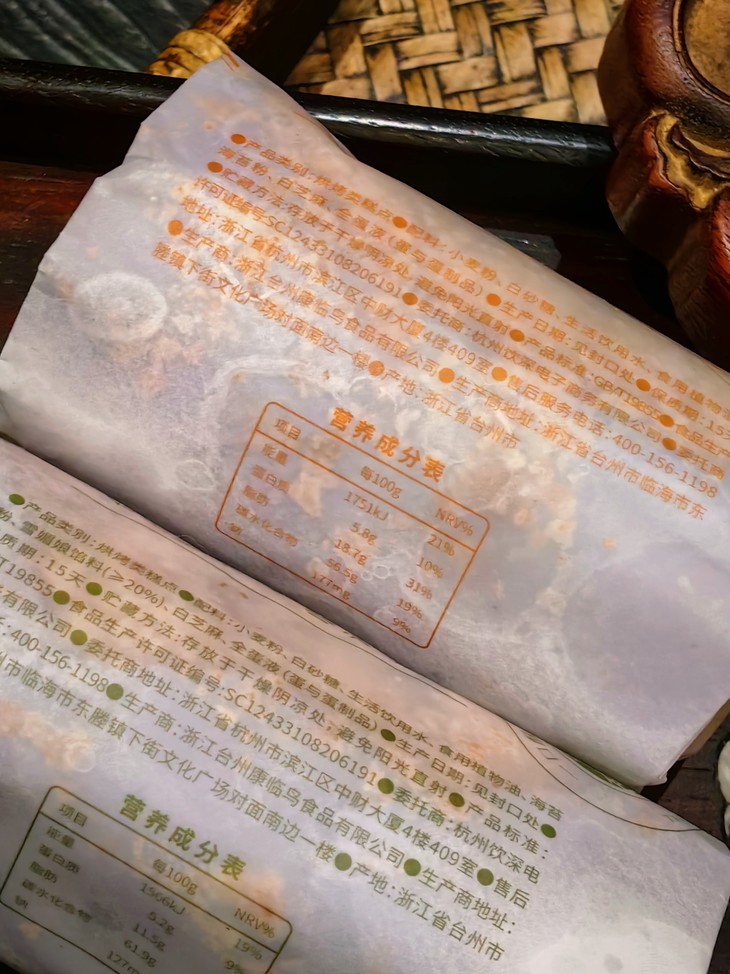 ●产品类别:烘烤类糕点●配料:小麦粉、白砂糖、生活饮用水、食用植物
海苔粉、白芝麻、全蛋液(蛋与蛋制品)●生产日期:见封口处●保质期:15
●贮藏方法:存放于干燥阴凉处,避免阳光直射●产品标准:GB/T19855●食品生产
许可证编号:SC12433108206191●委托商:杭州饮深电子商务有限公司●委托商
地址:浙江省杭州市滨江区中财大厦4楼409室●售后服务电话:400-156-1198
●生产商:浙江台州康临鸟食品有限公司●生产商地址:浙江省台州市临海市东
塍镇下街文化广场对面南边一楼●产地:浙江省台州市
营养成分表
项目 每100g NRV%
能量 1751kJ 21%
蛋白质 5.8g 10%
脂肪 18.7g 31%
碳水化合物 56.5g 19%
钠 177mg 9%
●产品类别:烘烤类糕点●配料:小麦粉、白砂糖、生活饮用水、食用植物油、海苔
粉、雪媚娘馅料(≥20%)、白芝麻、全蛋液(蛋与蛋制品)●生产日期:见封口处●
质期:15天●贮藏方法:存放于干燥阴凉处,避免阳光直射●产品标准:
T19855●食品生产许可证编号:SC12433108206191●委托商:杭州饮深电
有限公司●委托商地址:浙江省杭州市滨江区中财大厦4楼409室●售后
:400-156-1198●生产商:浙江台州康临鸟食品有限公司●生产商地址:
市临海市东塍镇下街文化广场对面南边一楼●产地:浙江省台州市
营养成分表
项目 每100g NRV%
能量 1566kJ 19%
蛋白质 5.2g 9%
脂肪 11.5g
碳水化合物 61.9g
钠 127m